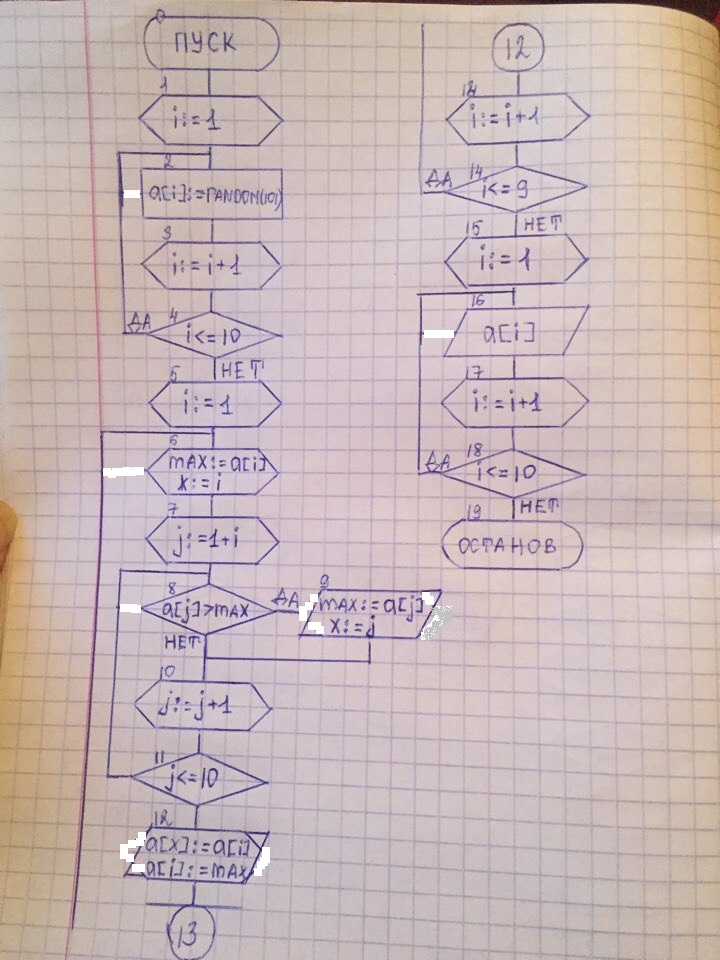 0
ПУСК
1
i:=1
2
a[i]:=RANDOM(101)
3
i:=i+1
4
ДА
i<=10
НЕТ
5
i:=1
6
MAX:=a[i]
X:=i
7
j:=1+i
8
a[j]>MAX
ДА
НЕТ
9
MAX:=a[j]
X:=j
10
j:=j+1
11
j<=10
12
a[X]:=a[i]
a[i]:=MAX
13
12
i:=i+1
14
ДА
i<=9
НЕТ
15
i:=1
16
a[i]
17
i:=i+1
18
ДА
i<=10
НЕТ
19
ОСТАНОВ